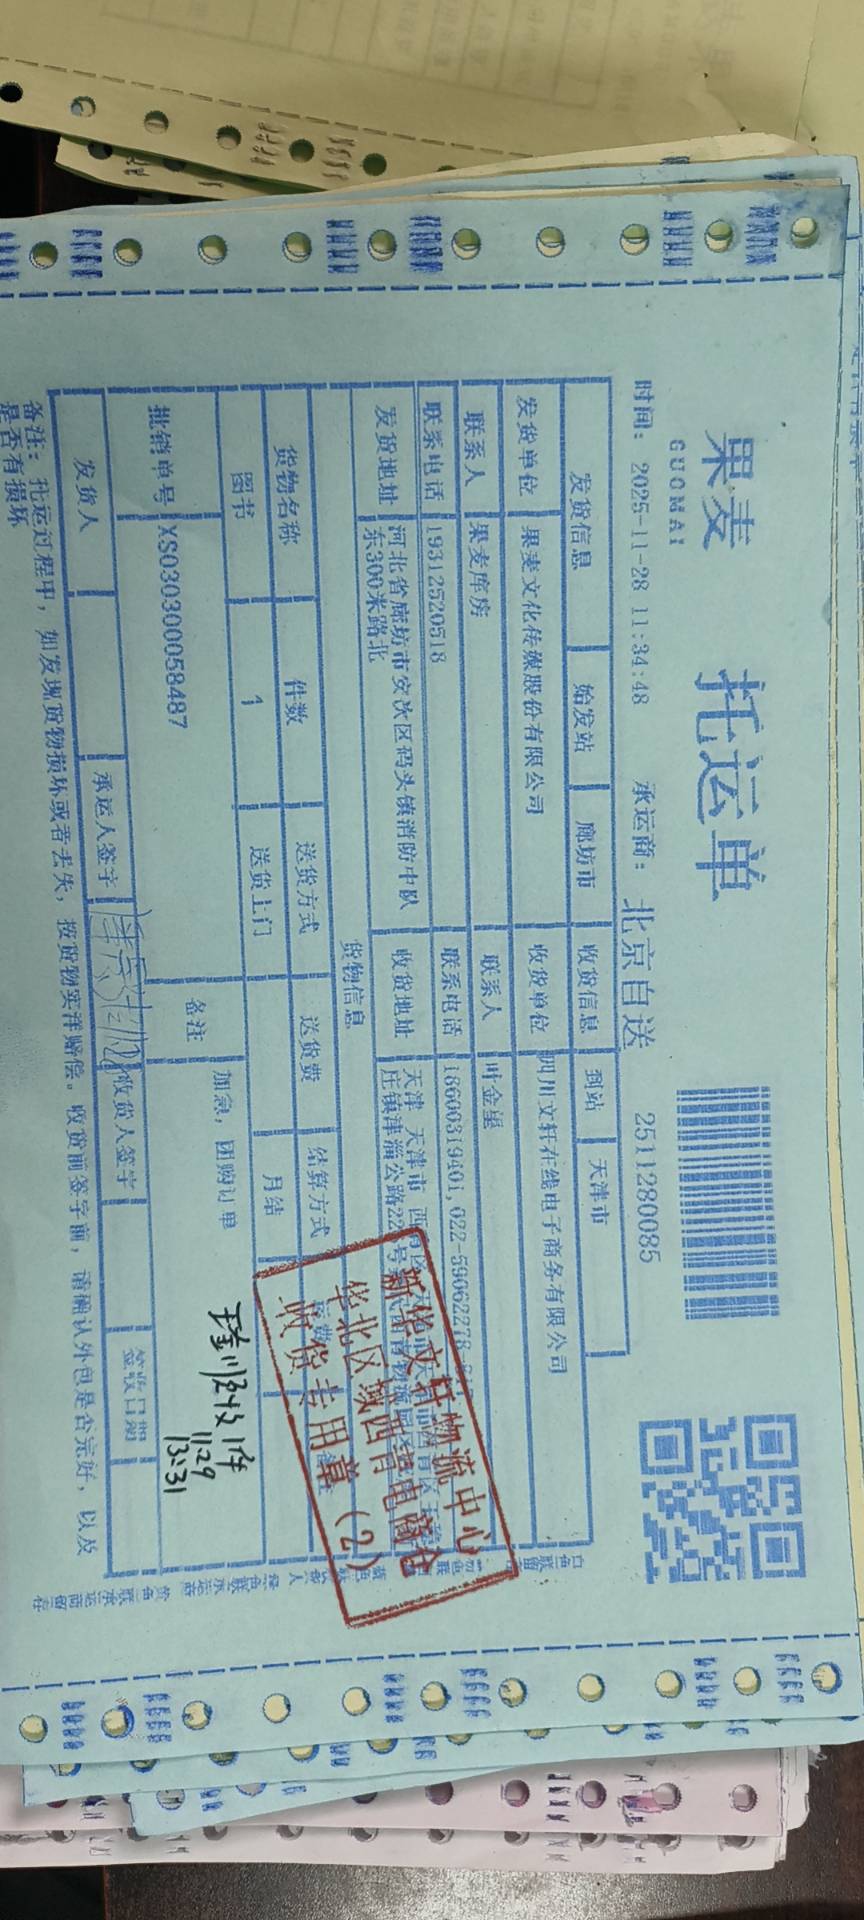 果麦 托运单
GUOMAI
时间: 2025-11-28 11:34:48 承运商: 北京自送 2511280085
发货信息 始发站 廊坊市 收货信息 到站 天津市
发货单位 果麦文化传媒股份有限公司 收货单位 四川文轩在线电子商务有限公司
联系人 果麦库房 联系人 叶金星
联系电话 19312520518 联系电话 18600319401,022-59062278
发货地址 河北省廊坊市安次区码头镇消防中队
东300米路北
收货地址 天津 天津市
庄镇津淄公路22 号
货物信息
货物名称 件数 送货方式 送货费 结算方式
图书 1 送货上门 月结
批销单号 XS030300058487 备注 加急, 团购订单
发货人 承运人签字 收货人签字 签收日期
备注: 托运过程中, 如发现货物损坏或者丢失, 按货物实洋赔偿。收货前签字前, 请确认外包是否完好, 以及
是否有损坏
新华文轩物流中心
华北区域西青电商仓
收货专用章(2)
1件
11.29
13:31